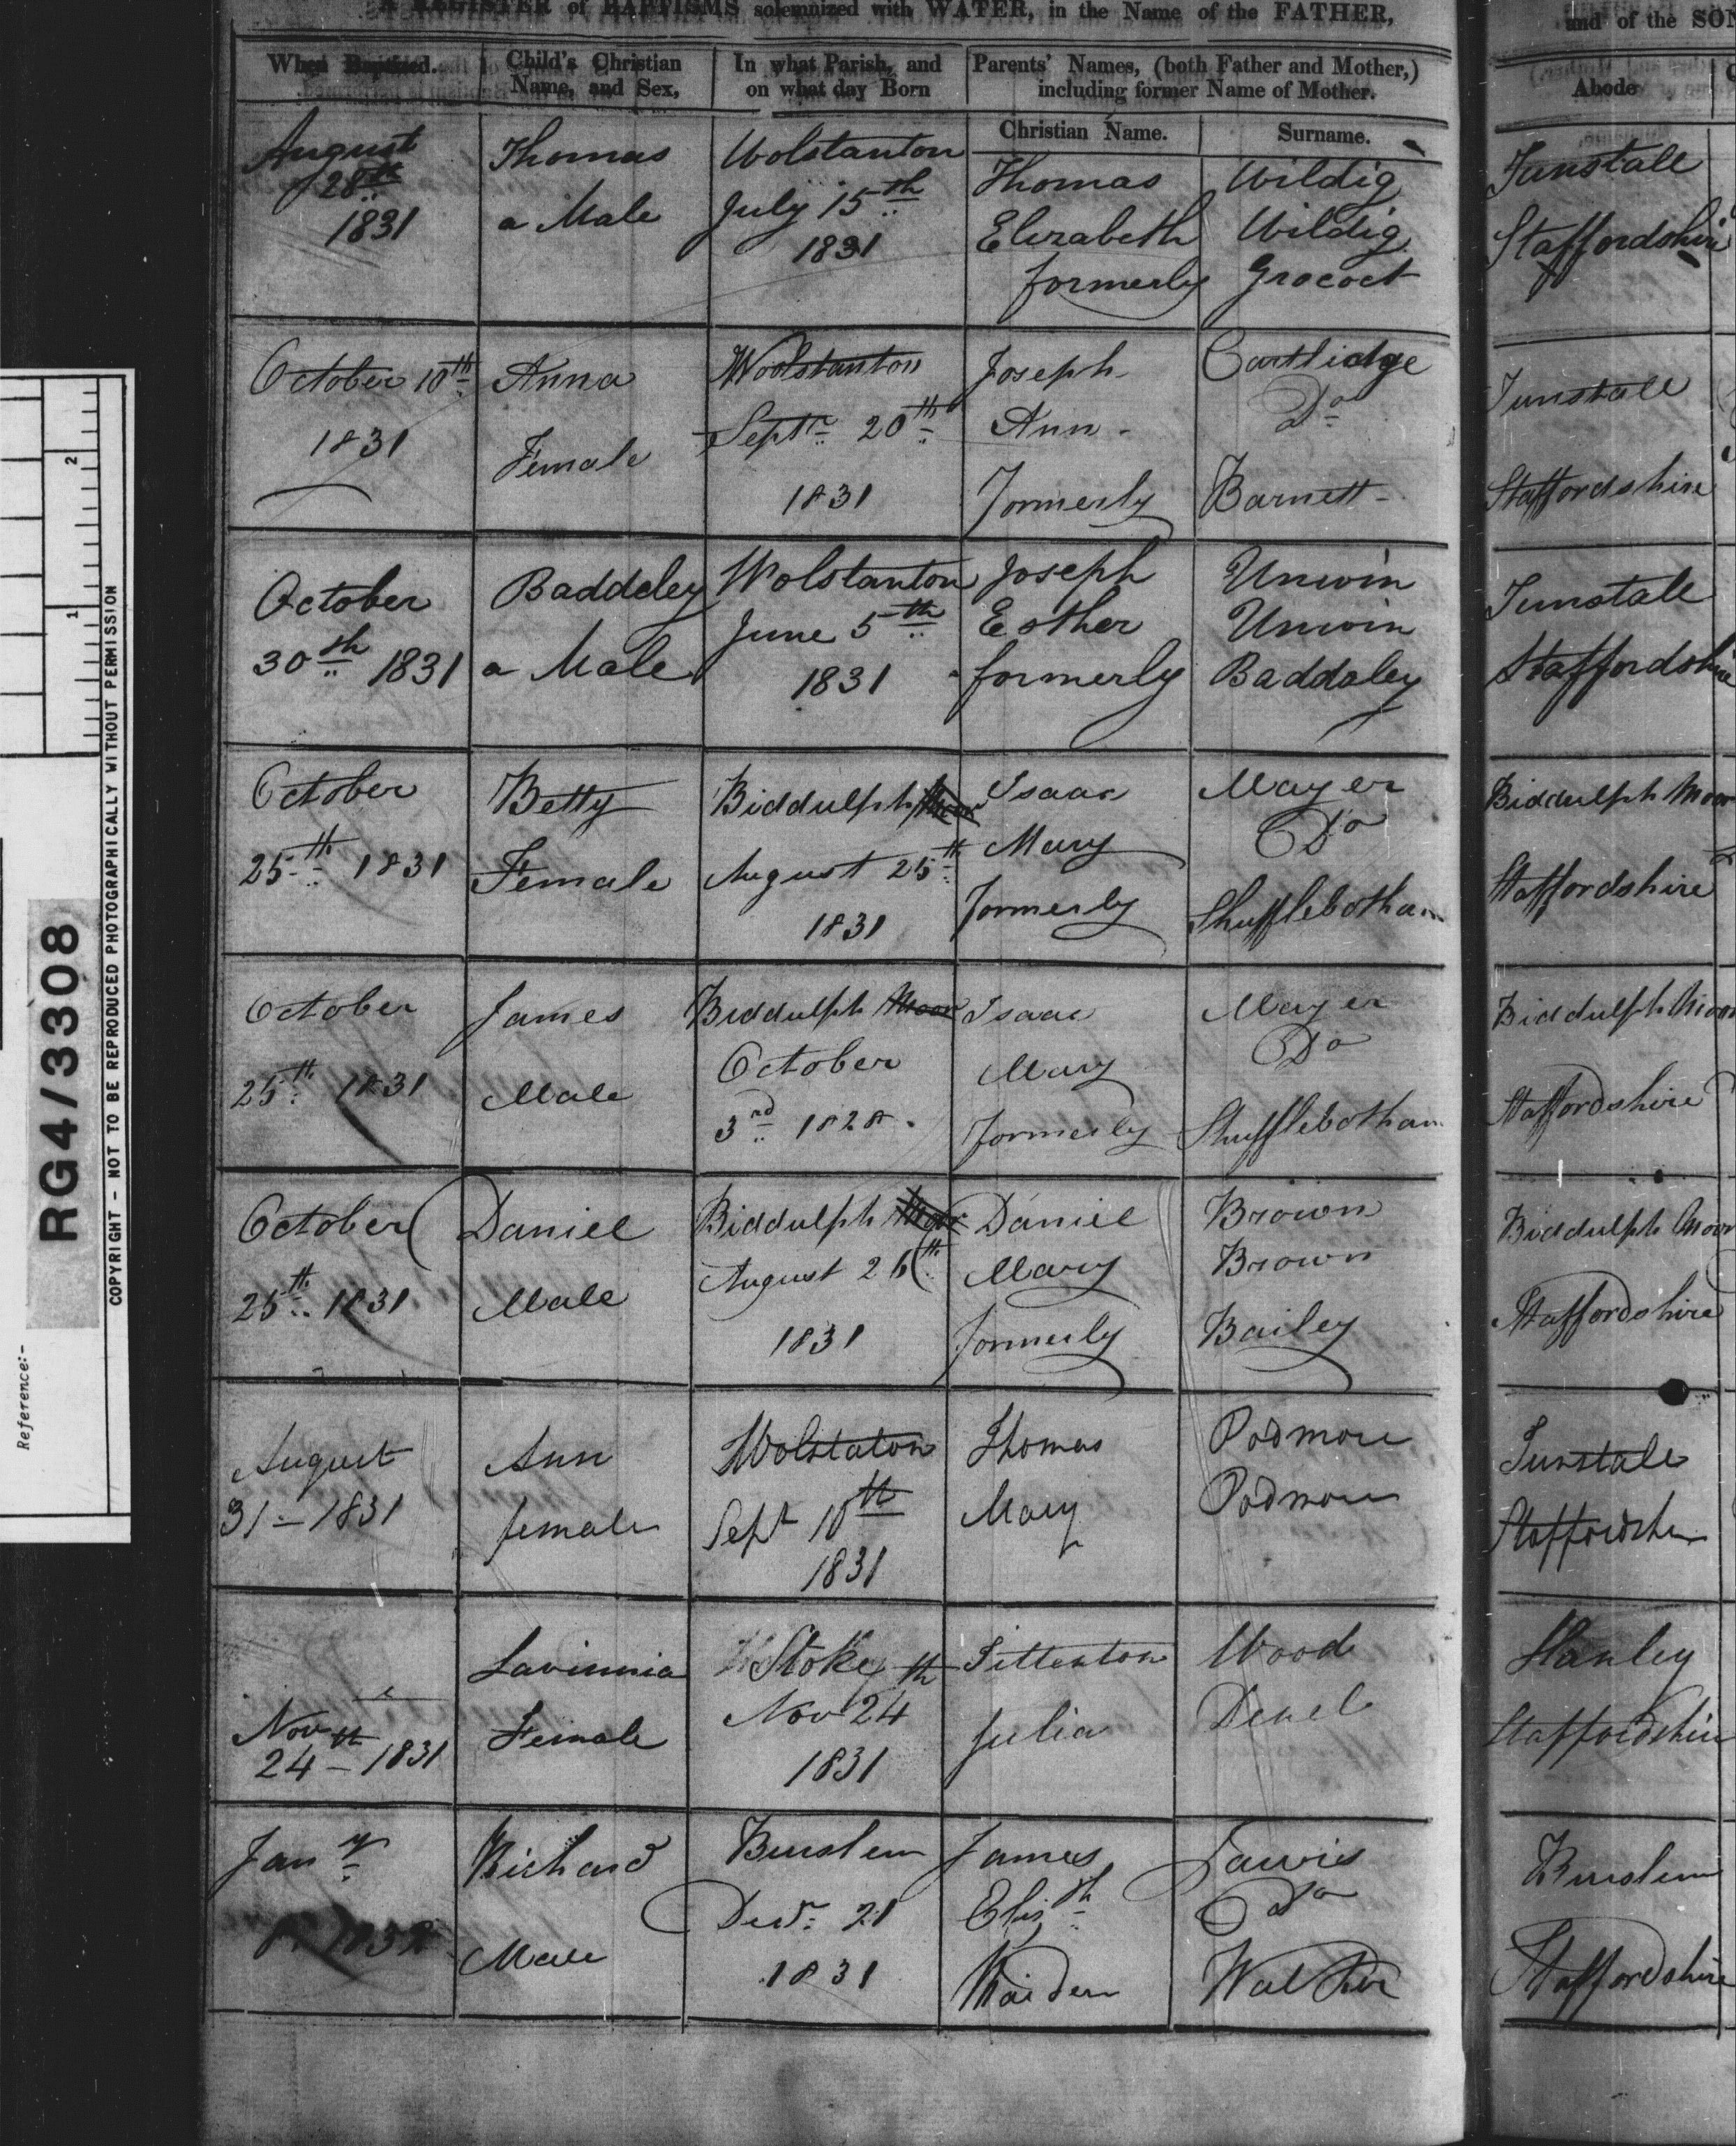 A REGISTER of BAPTISMS solemnized with WATER, in the Name of the FATHER,
and of the SON
When Baptized.
Child's Christian Name, and Sex,
In what Parish, and on what day Born
Parents' Names, (both Father and Mother,) including former Name of Mother.
Christian Name.
Surname.
Abode
August
28th
1831
Thomas
a Male
Wolstanton
July 15th
1831
Thomas
Elizabeth
formerly
Wildig
Wildig
Grococt
Tunstall
Staffordshire
October 10th
1831
Anna
Female
Woolstanton
Septr 20th
1831
Joseph
Ann
Formerly
Cartlidge
Do
Barnett
Tunstall
Staffordshire
October
30th 1831
Baddeley
a Male
Wolstanton
June 5th
1831
Joseph
Esther
formerly
Unwin
Unwin
Baddaley
Tunstall
Staffordshire
October
25th 1831
Betty
Female
Biddulph Moor
August 25th
1831
Isaac
Mary
formerly
Mayer
Do
Shufflebotham
Biddulph Moor
Staffordshire
October
25th 1831
James
Male
Biddulph Moor
October
3rd 1828.
Isaac
Mary
formerly
Mayer
Do
Shufflebotham
Biddulph Moor
Staffordshire
October
25th 1831
Daniel
Male
Biddulph Moor
August 26th
1831
Daniel
Mary
formerly
Brown
Brown
Bailey
Biddulph Moor
Staffordshire
August
31 - 1831
Ann
female
Wolstaton
Sept 10th
1831
Thomas
Mary
Podmore
Podmore
Tunstall
Nov
24th - 1831
Lavinnia
Female
Stoke
Nov 24th
1831
Titterton
Julia
Wood
Hanley
Staffordshire
Jany
8. 1832
Richard
Male
Burslem
Decr. 21
1831
James
Elizth
Maiden
Do
Walker
Burslem
Staffordshire
2
1
Reference:-
RG4/3308
COPYRIGHT - NOT TO BE REPRODUCED PHOTOGRAPHICALLY WITHOUT PERMISSION